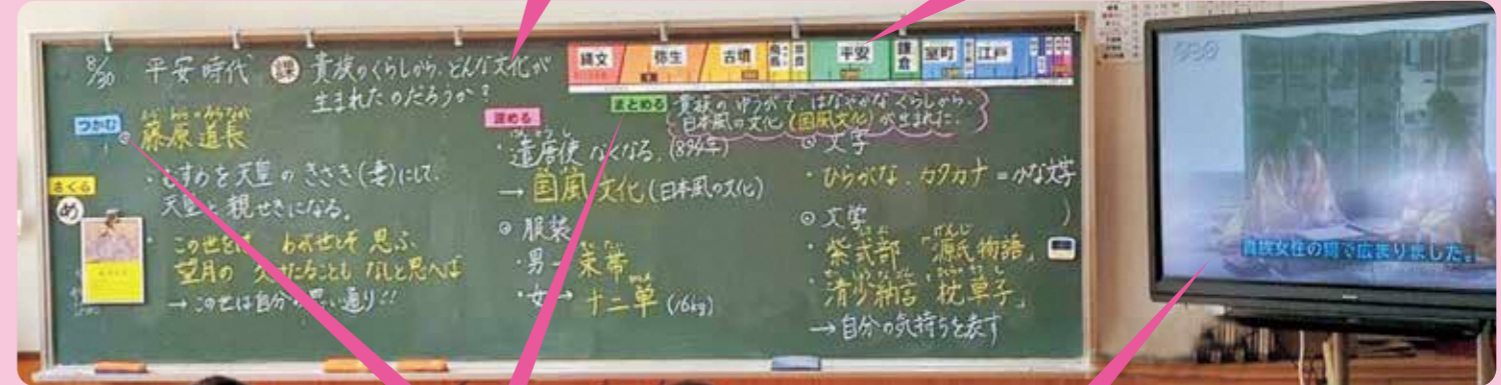 8/30 平安時代 課 貴族のくらしから、どんな文化が
生まれたのだろうか?
縄文 弥生 古墳 飛鳥 奈良 平安 鎌倉 室町 江戸
つかむ
ふじ わらの みちなが
藤原道長
・むすめを天皇のきさき(妻)にして、
天皇と親せきになる。
さぐる
め
・この世をば わが世とぞ 思ふ
望月の 欠けたることも なしと思へば
→この世は自分の思い通り!!
深める
・遣唐使 なくなる。(894年)
→国風文化(日本風の文化)
◎服装
・男→束帯
・女→十二単(16kg)
まとめる
貴族のゆうがで、はなやかなくらしから、
日本風の文化(国風文化)が生まれた。
◎文字
・ひらがな、カタカナ=かな文字
◎文学
・紫式部「源氏物語」
・清少納言「枕草子」
→自分の気持ちを表す
貴族女性の間で広まりました。